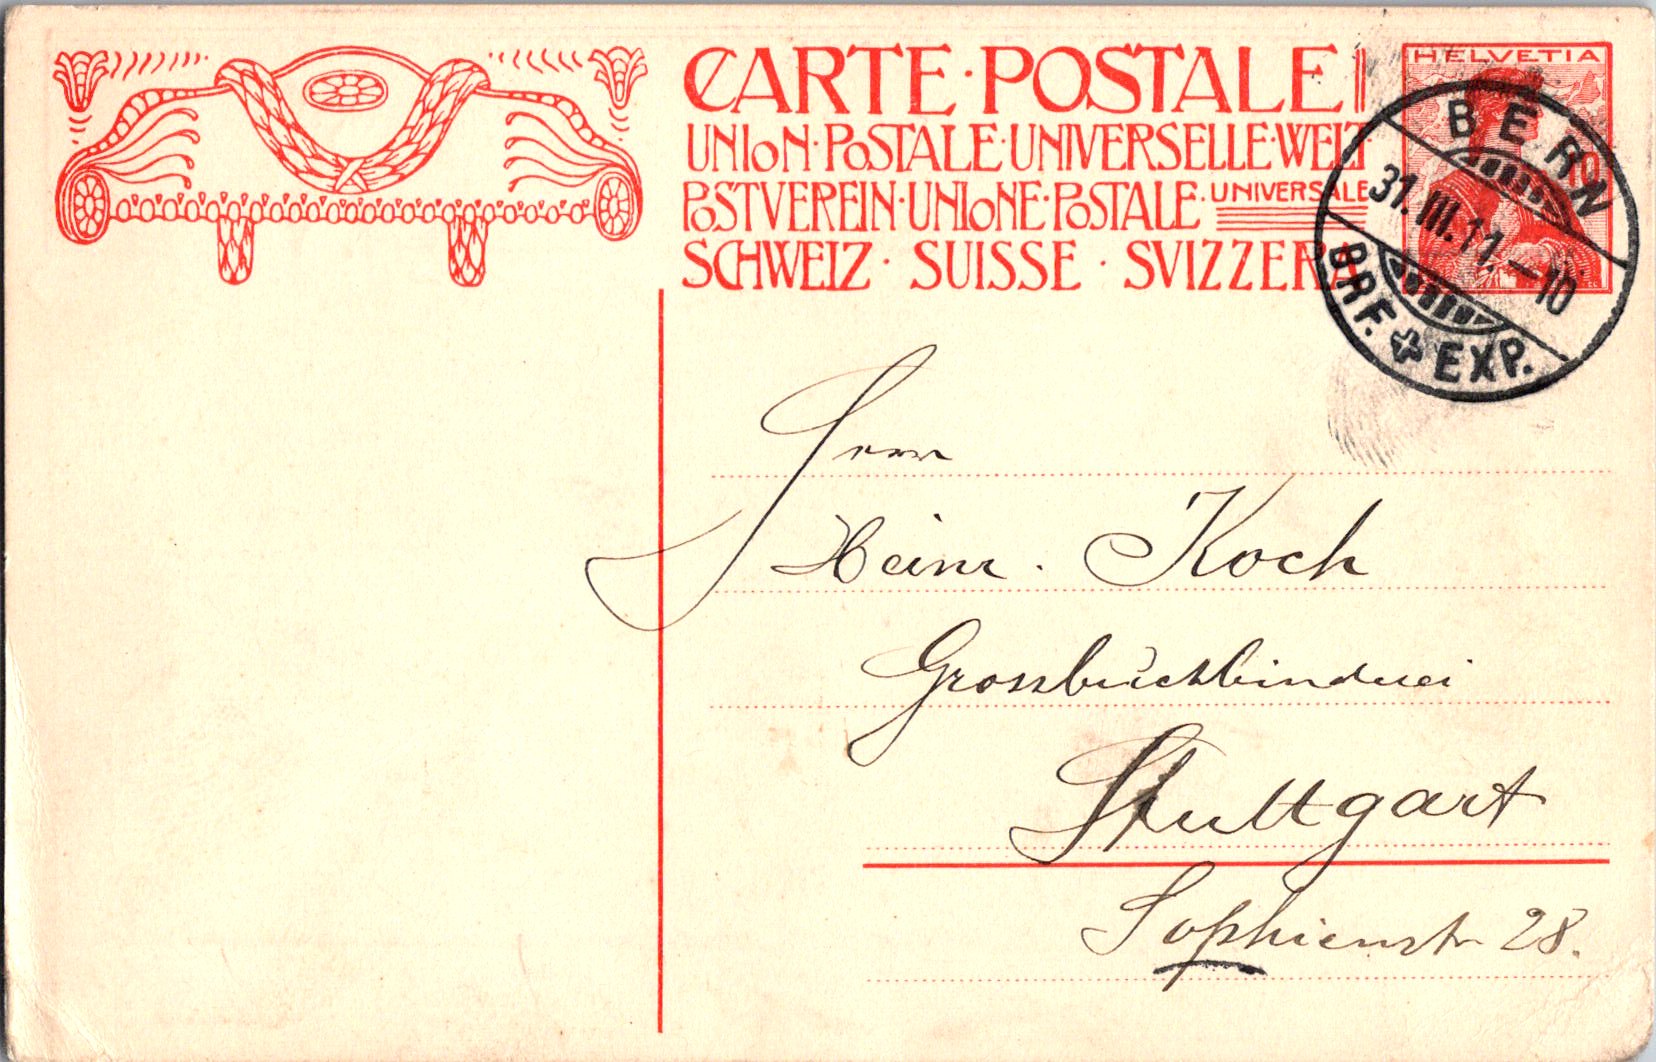 CARTE·POSTALE
UNION·POSTALE·UNIVERSELLE·WELT
POSTVEREIN·UNIONE·POSTALE·UNIVERSALE
SCHWEIZ · SUISSE · SVIZZERA
HELVETIA
10
BERN
31.III.11.–10
BRF. EXP.
Herrn
Heinr. Koch
Grossbuchbinderei
Stuttgart
Sophienstr 28.